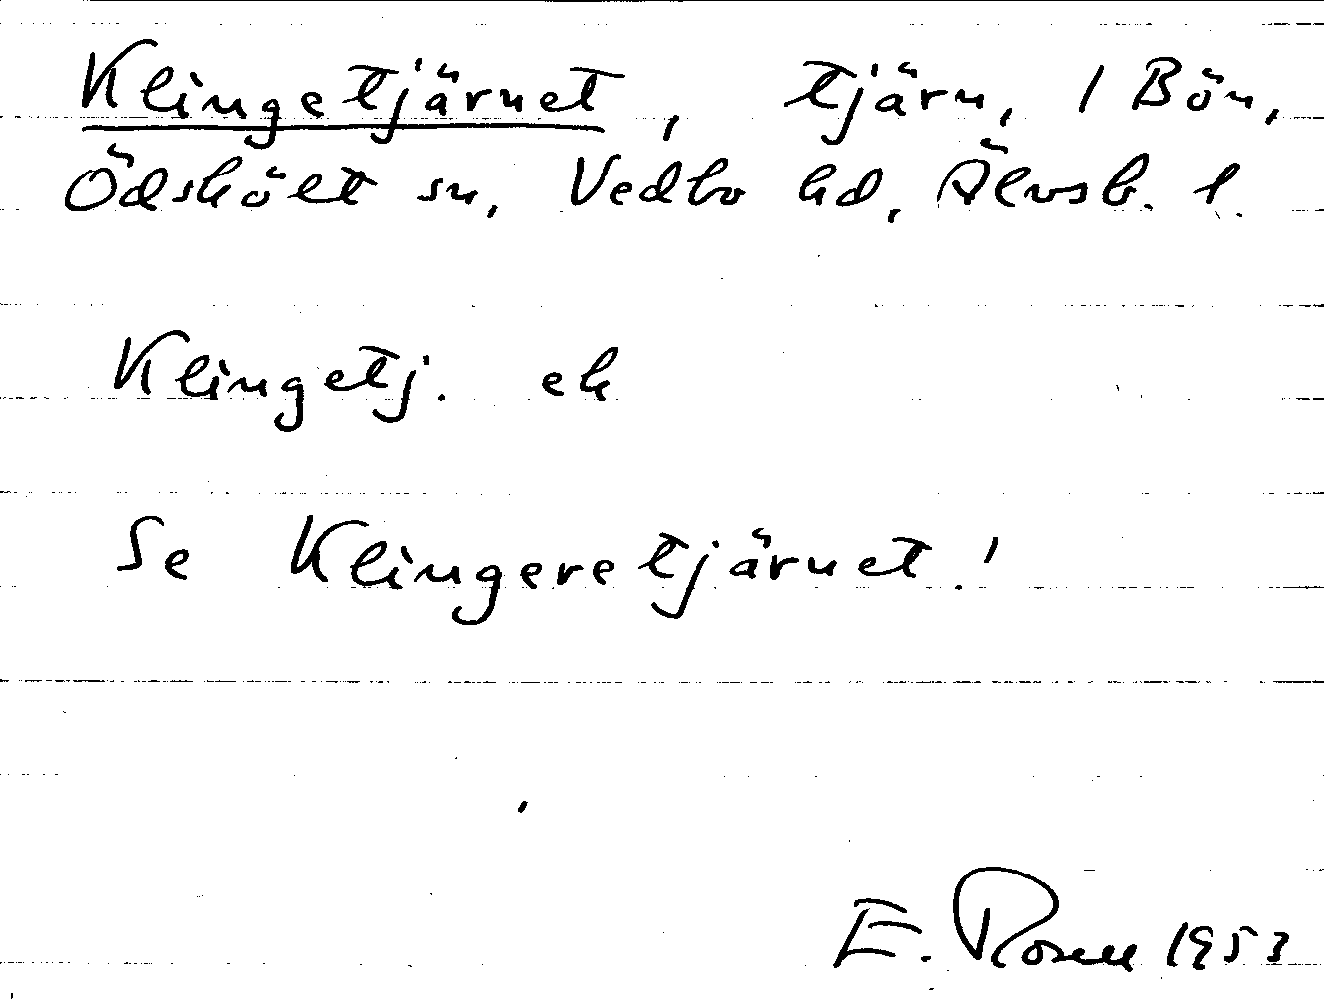 Klingetjärnet, tjärn, 1 Bön,
Ödskölt sn, Vedbo hd, Älvsb. l.
Klingetj. ek
Se Klingeretjärnet!
E. Rosell 1953